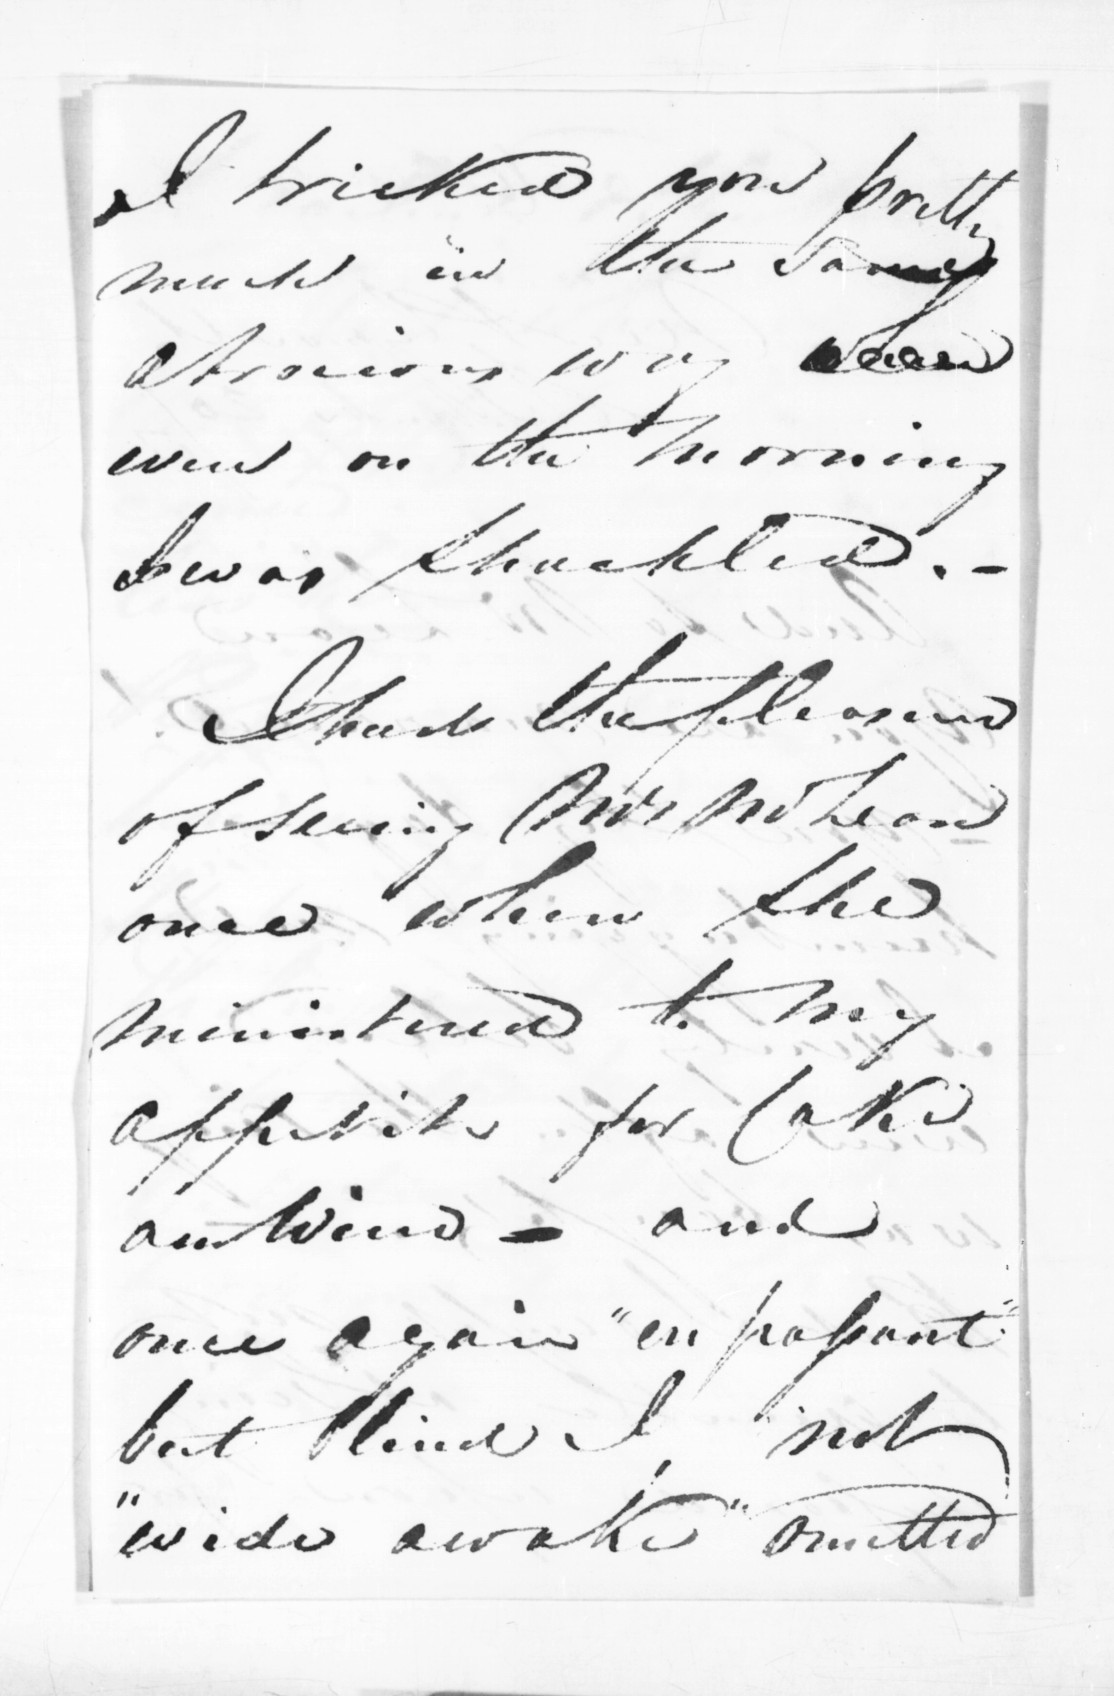 I tricked you pretty
much in the same
atrocious way when
even on the morning
I was shackled. -
I had the pleasure
of seeing Mrs McLean
once when she
ministered to my
appetite for Cake
an Wine - and
once again "en passant"
but blind I, not
"wide awake" omitted